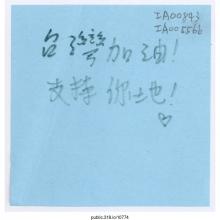 IA00843
IA005566
台灣加油!
支持你地!
♡
public.318.io/10774